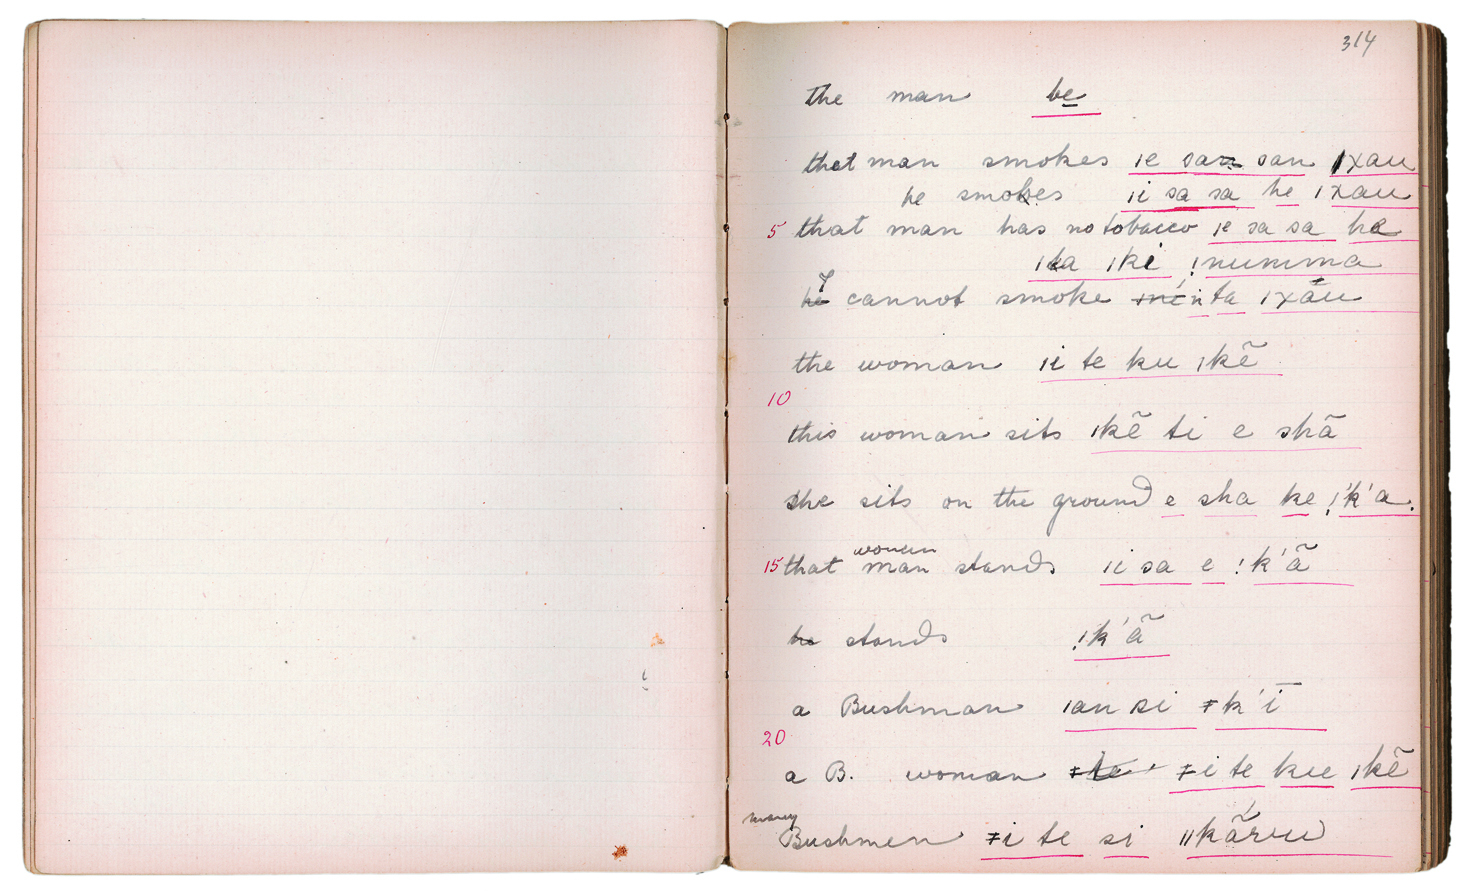 314
the man he
that man smokes ǀe san san ǀxau
he smokes ǀi sa sa he ǀxau
5 that man has no tobacco ǀe sa sa he
ǀta ǀki ǃnumma
I
cannot smoke n ta ǀxāu
the woman ǀi te ku ǀkẽ
10
this woman sits ǀkẽ ti e shã
she sits on the ground e sha ke ǃk'a.
woman
15 that man stands ǀi sa e ǃk'ã
he stands ǃk'ã
a Bushman ǀan si ǂk'ī
20
a B. woman ǂi te kue ǀkẽ
many
Bushmen ǂi te si ǁkãruu